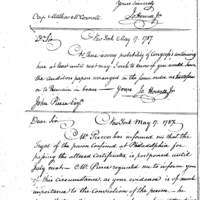 Yours Sincerely
J Howell Jr
Capt. Matthew McConnell
Dr Sir New York May 17. 1787.
Is there any probability of Congress continuing
here at least until next May. I wish to know if you would have
the condition papers arranged in the same order as heretofore
or to Remain in boxes — Yours J Howell Jr
John Pierce Esqr
Dear Sir New York May 17. 1787.
Mr Pierce has informed me that the
Tryal of the person confined at Philadelphia for
passing the altered Certificates, is postponed until
July next — Mr Pierce requested me to inform you
of this Circumstance, as your evidence is of much
importance to the Conviction of the person. — he